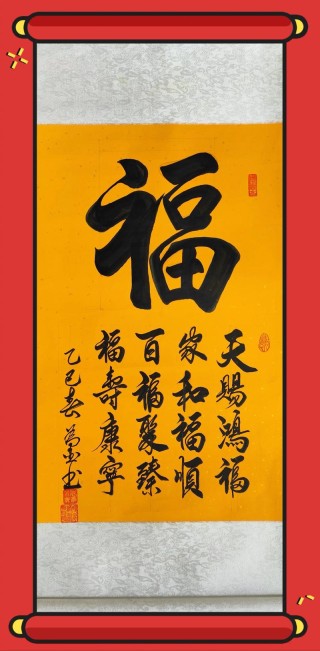 福
天賜鴻福
家和福順
百福聚臻
福壽康寧
乙巳春